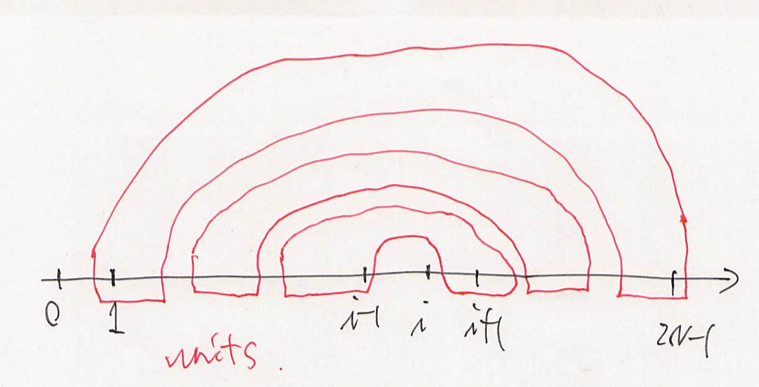 0 1 i-1 i i+1 2N-1
units.